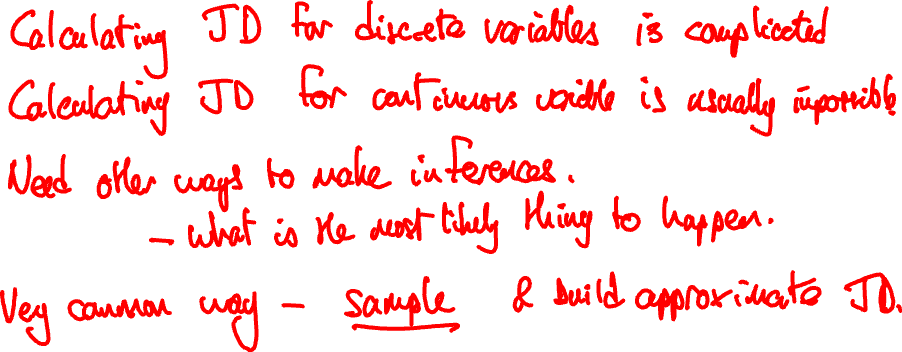 Calculating JD for discrete variables is complicated
Calculating JD for continuous variable is usually impossible
Need other ways to make inferences.
- what is the most likely thing to happen.
Very common way - sample & build approximate JD.